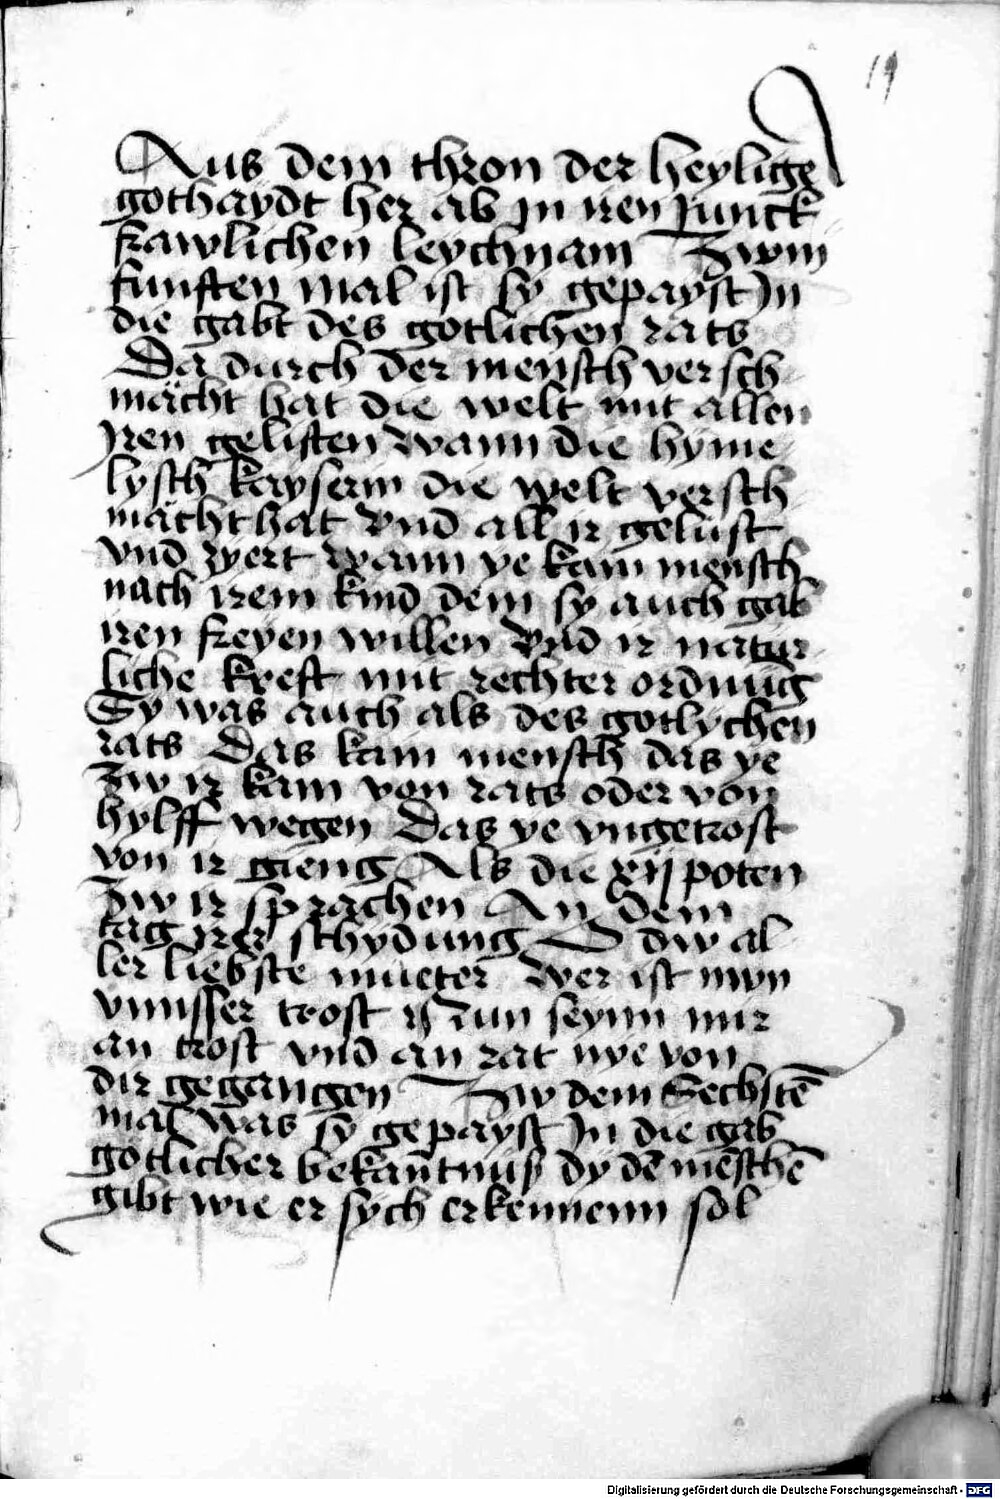 19
Aus dem thron der heylige
gothaydt her ab jn iren junck
frawlichen leychnam Zwm
funften mal ist sy gepayst Jn
die gabt des gotlichen rats
Da durch der mensch versch
mächt hat die welt mit allen
jren gelisten wann die hyme
lysch kayserin die welt versch
mächt hat vnd all ir gelust
vnd zyert wann ye kam mensch
nach irem kind dem sy auch gab
iren freyen willen vnd ir natur
liche kreft mit rechter ordnung
Sy was auch als des gotlychen
rats Das kain mensch das ye
zw ir kam von rats oder von
hylff wegen Das ye vngetrost
von ir gieng Als die xij poten
zw ir sprachen An dem
tag irer schydung O dw al
ler liebste mueter wer ist nwn
vnnsser trost Nun seynn mir
an trost vnd an rat nye von
dir gegangen Zw dem Sechstē
mal was sy gepayst Jn die gab
gotlicher bekantnuß dy dē mēschē
gibt wie er sych erkennenn sol
Digitalisierung gefördert durch die Deutsche Forschungsgemeinschaft - DFG